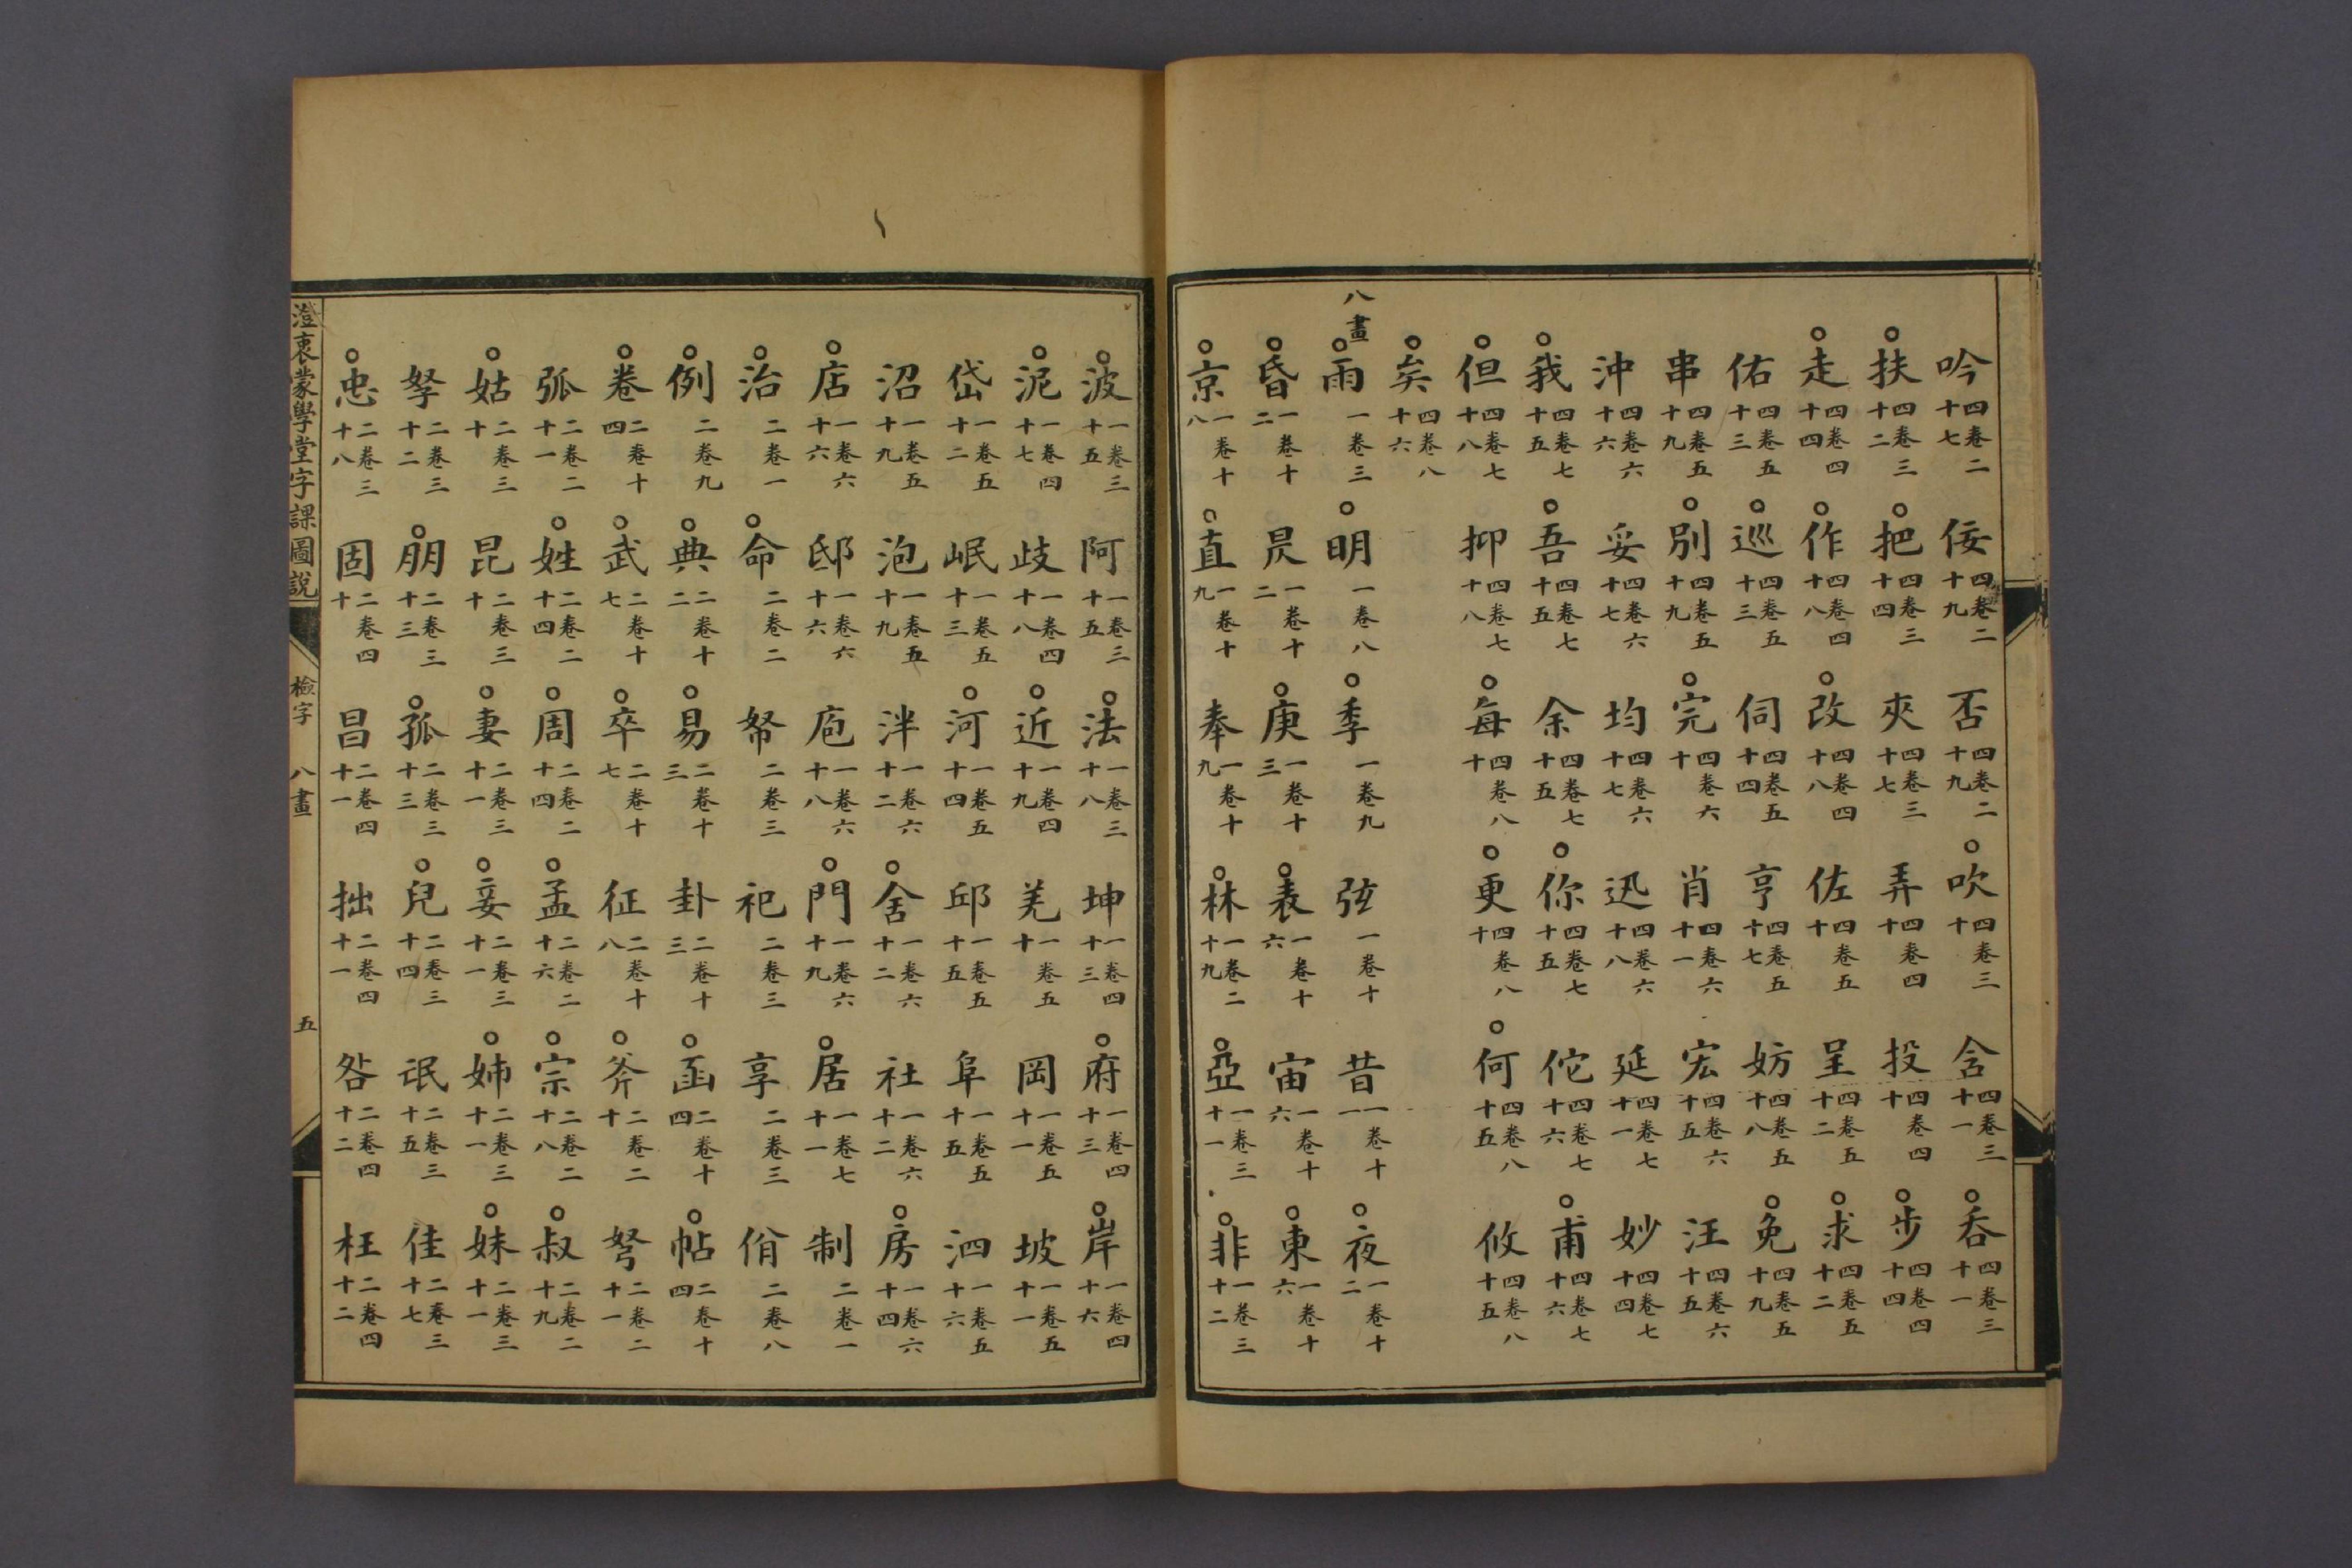 吟四卷二十七 佞四卷二十九 否四卷二十九 ○吹四卷三十 含四卷三十一 ○吞四卷三十一
○扶四卷三十二 ○把四卷三十四 夾四卷三十七 弄四卷四十 投四卷四十 ○步四卷四十四
○走四卷四十四 ○作四卷四十八 ○改四卷四十八 佐四卷五十 呈四卷五十二 ○求四卷五十二
佑四卷五十三 ○巡四卷五十三 伺四卷五十四 亨四卷五十七 妨四卷五十八 ○免四卷五十九
串四卷五十九 ○別四卷五十九 ○完四卷六十 肖四卷六十一 宏四卷六十五 汪四卷六十五
沖四卷六十六 妥四卷六十七 均四卷六十七 迅四卷六十八 延四卷七十一 妙四卷七十四
○我四卷七十五 ○吾四卷七十五 余四卷七十五 ○你四卷七十五 佗四卷七十六 ○甫四卷七十六
○但四卷七十八 抑四卷七十八 ○每四卷八十 ○更四卷八十 ○何四卷八十五 攸四卷八十五
○矣四卷八十六
八畫
○雨一卷三 ○明一卷八 ○季一卷九 弦一卷十 昔一卷十一 ○夜一卷十二
○昏一卷十二 昃一卷十二 ○庚一卷十三 ○表一卷十六 宙一卷十六 ○東一卷十六
○京一卷十八 ○直一卷十九 奉一卷十九 ○林一卷二十九 ○亞一卷三十一 ○非一卷三十二
○波一卷三十五 阿一卷三十五 ○法一卷三十八 坤一卷四十三 ○府一卷四十三 ○岸一卷四十六
○泥一卷四十七 歧一卷四十八 ○近一卷四十九 羌一卷五十 岡一卷五十一 坡一卷五十一
岱一卷五十二 岷一卷五十三 ○河一卷五十四 邱一卷五十五 阜一卷五十五 泗一卷五十六
沼一卷五十九 泡一卷五十九 泮一卷六十二 ○舍一卷六十二 社一卷六十二 ○房一卷六十四
○店一卷六十六 邸一卷六十六 庖一卷六十八 ○門一卷六十九 ○居一卷七十一 制二卷一
○治二卷一 ○命二卷二 帑二卷三 祀二卷三 享二卷三 佾二卷八
○例二卷九 ○典二卷十二 ○易二卷十三 卦二卷十三 ○函二卷十四 ○帖二卷十四
○卷二卷十四 ○武二卷十七 ○卒二卷十七 征二卷十八 ○斧二卷二十 弩二卷二十一
弧二卷二十一 ○姓二卷二十四 ○周二卷二十四 ○孟二卷二十六 ○宗二卷二十八 ○叔二卷二十九
○姑二卷三十 昆二卷三十 ○妻二卷三十一 ○妾二卷三十一 ○姊二卷三十一 ○妹二卷三十一
孥二卷三十二 ○朋二卷三十三 ○孤二卷三十三 ○兒二卷三十四 氓二卷三十五 佳二卷三十七
○忠二卷三十八 固二卷四十 昌二卷四十一 拙二卷四十一 咎二卷四十二 枉二卷四十二
澄衷蒙學堂字課圖說 檢字 八畫 五